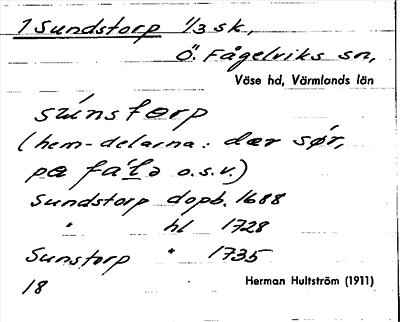 1 Sundstorp 1/3 sk,
Ö. Fågelviks sn,
Väse hd, Värmlands län
súnstorp
(hem-delarna: dær sør,
pa fáLa o.s.v.)
Sundstorp dopb. 1688
" hl 1728
Sunstorp " 1735
18 Herman Hultström (1911)